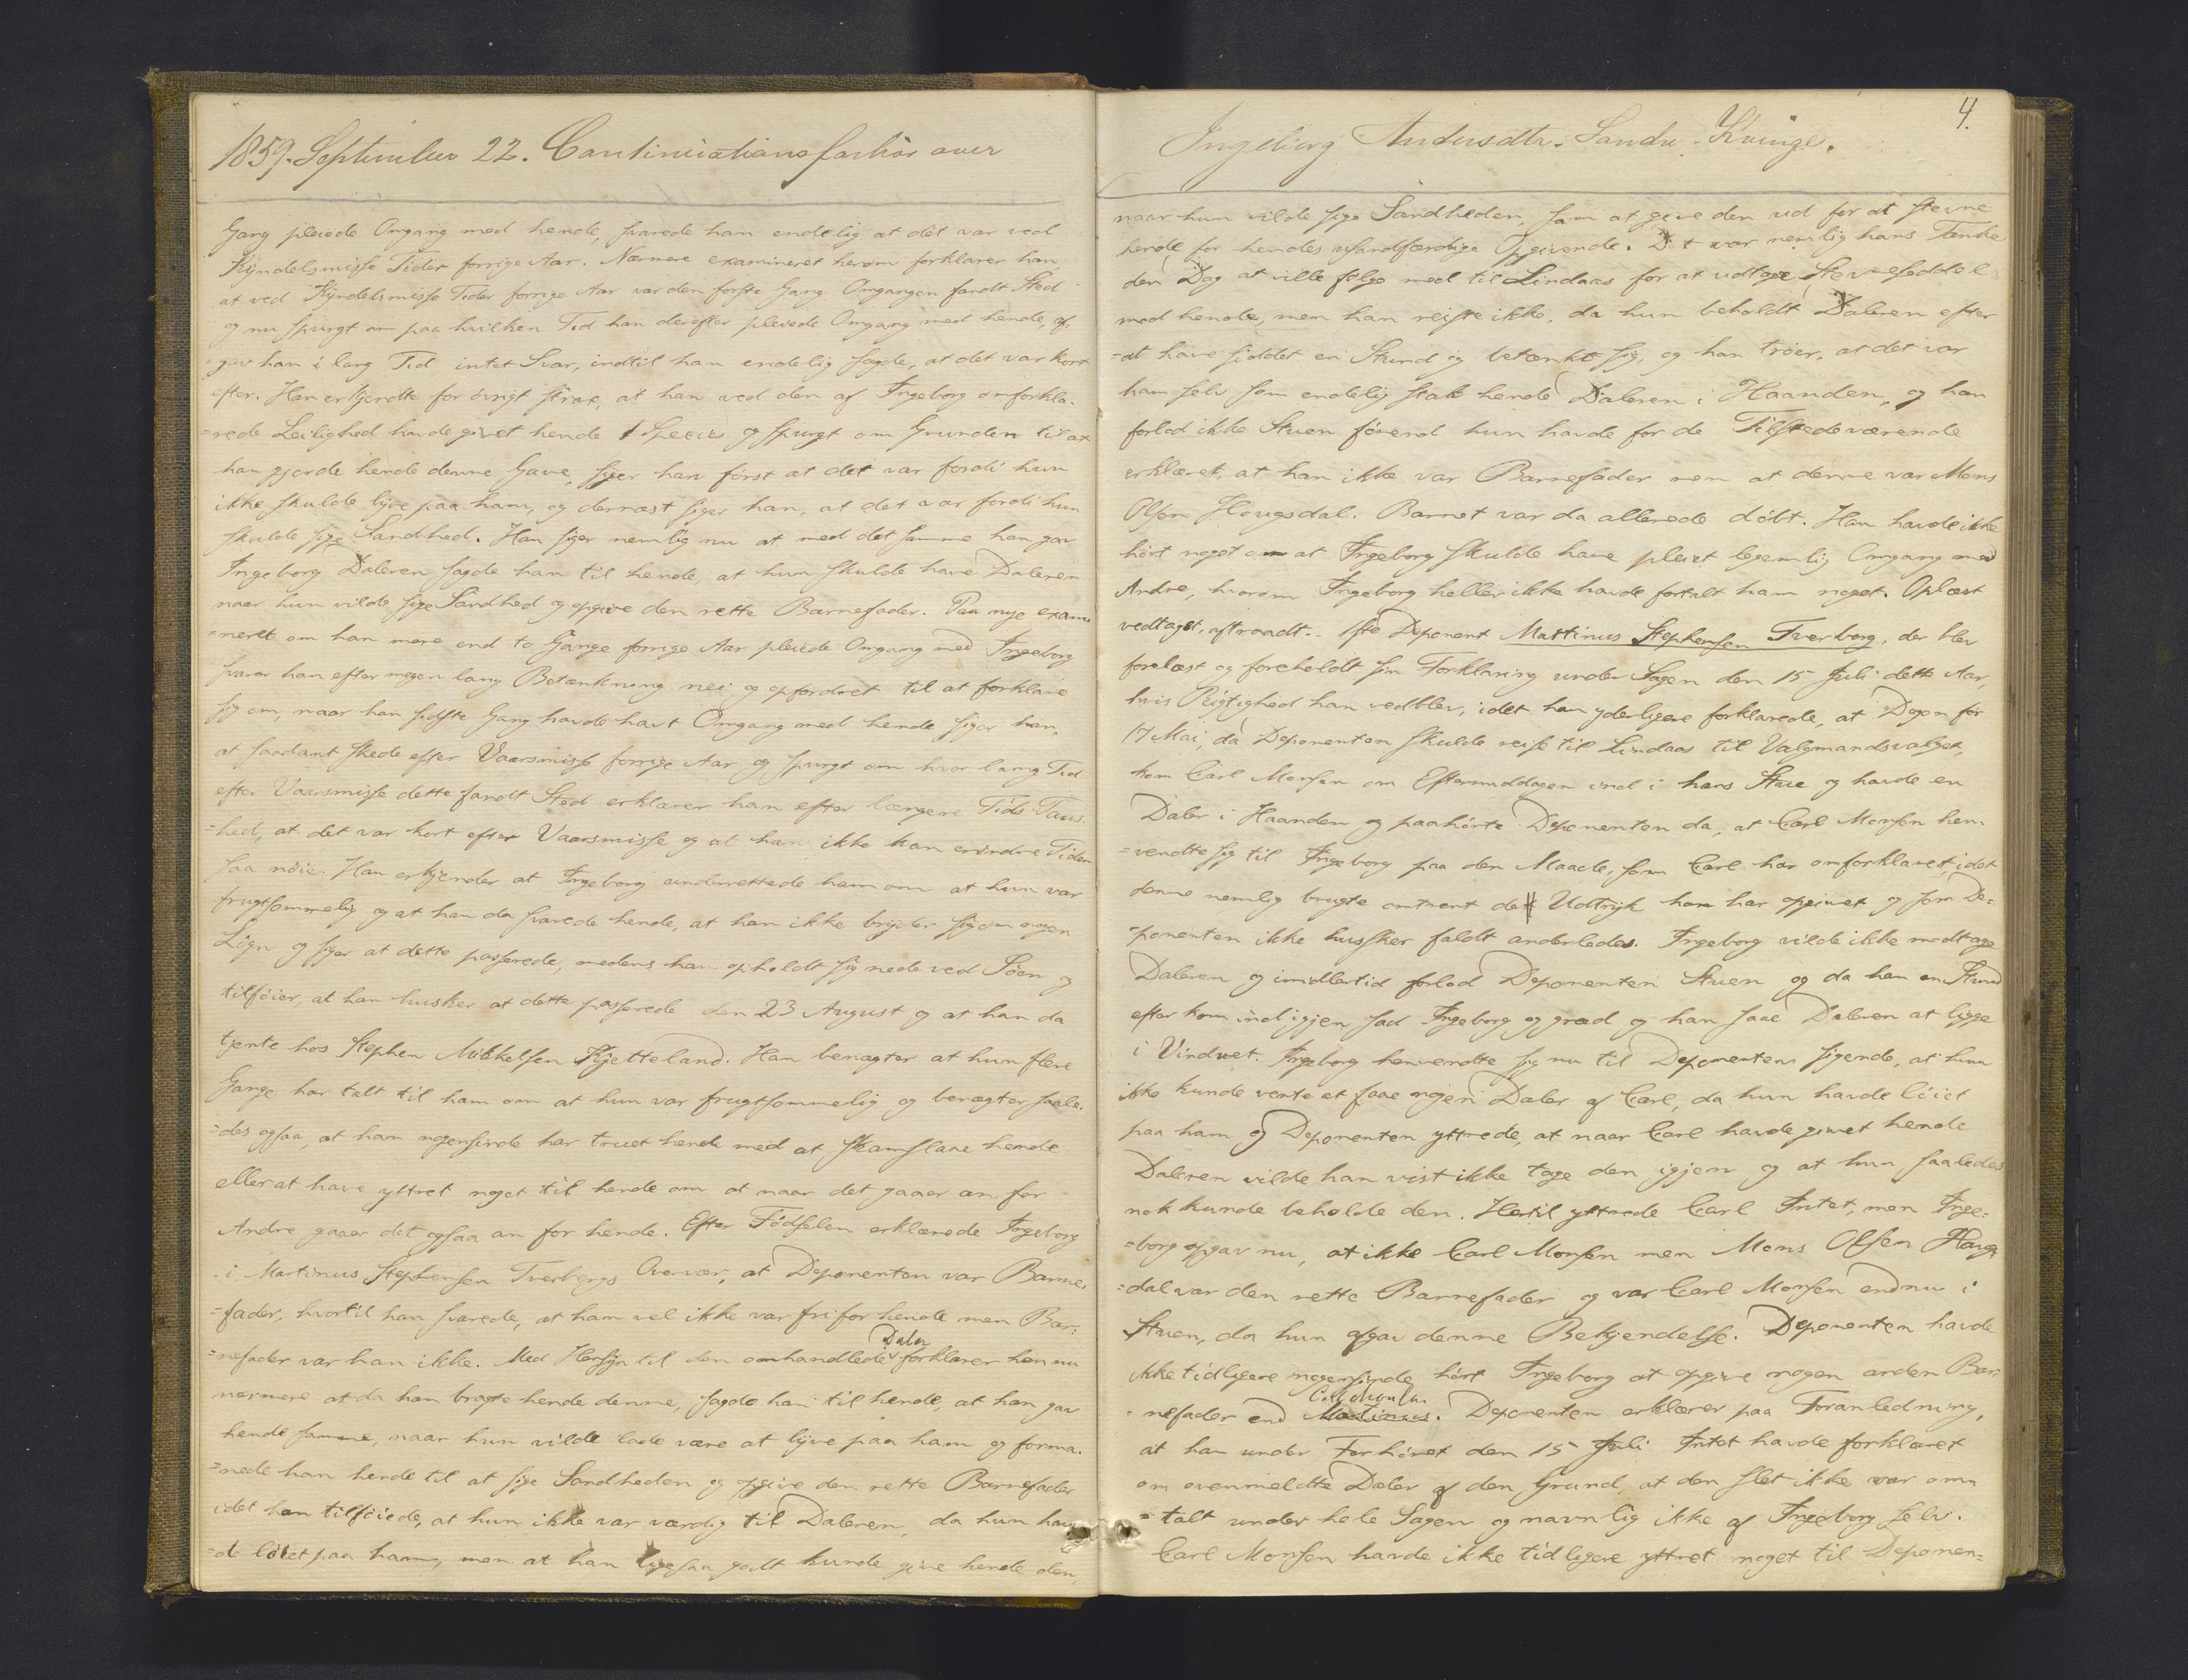 1859. September 22. Continuationsforhør over
Gang pleiede Omgang med hende, svarede han endelig at det var ved
Kyndelsmisse Tider forrige Aar. Nærmere examineret herom forklarer han
at ved Kyndelsmisse Tider forrige Aar var den første Gang Omgangen fandt Sted
og nu spurgt om paa hvilken Tid han derefter pleiede Omgang med hende, af-
=gav han i lang Tid intet Svar, indtil han endelig sagde, at det var kort
efter. Han erkjendte for øvrigt strax, at han ved den af Ingeborg omforkla-
=rede Leilighed havde givet hende 1 Specie og spurgt om Grunden til at
han gjorde hende denne Gave, siger han først at det var fordi hun
ikke skulde lyve paa ham, og dernæst siger han, at det var fordi hun
skulde sige Sandhed. Han siger nemlig nu at med det samme han gav
Ingeborg Daleren sagde han til hende, at hun skulde have Daleren
naar hun vilde sige Sandhed og opgive den rette Barnefader. Paa nye exami
=neret om han mere end to Gange forrige Aar pleiede Omgang med Ingeborg
svarer han efter megen lang Betænkning nei og opfordret til at forklare
sig om, naar han sidste Gang havde havt Omgang med hende siger han,
at saadant skede efter Vaarmisse forrige Aar og spurgt om hvor lang Tid
efter Vaarsmisse dette fandt Sted erklærer han efter længere Tids Taus-
=hed, at det var kort efter Vaarsmisse og at han ikke kan erindre Tiden
saa nøie. Han erkjender at Ingeborg underrettede ham om at hun var
frugtsommelig og at han da svarede hende, at han ikke bryder sig om nogen
Løgn og siger at dette passerede, medens han opholdt sig nede ved Søen og
tilføier, at han husker at dette passerede den 23 August og at han da
tjente hos Stephen Mikkelsen Kjetteland. Han benægter at hun flere
Gange har talt til ham om at hun var frugtsommelig og benægter saale-
=des ogsaa, at han nogensinde har truet hende med at skamslaae hende
eller at have yttret noget til hende om at naar det gaaer an for
Andre gaaer det ogsaa an for hende. Efter Fødselen erklærede Ingeborg
i Martinus Stephensen Tverbergs Overvær, at Deponenten var Barne-
=fader, hvortil han svarede, at han vel ikke var fri for hende men Bar-
=nefader var han ikke. Med Hensyn til den omhandlede Daler forklarer han nu
nærmere at da han bragte hende denne, sagde han til hende, at han gav
hende samme, naar hun vilde lade være at lyve paa ham og forma-
=nede han hende til at sige Sandheden og opgive den rette Barnefader
idet han tilføiede, at hun ikke var værdig til Daleren, da hun hav
=de løiet paa ham, men at han ligesaa godt kunde give hende den,
4.
Ingeborg Andersdtr. Sandn. Kvinge.
naar hun vilde sige Sandheden, som at give den ud for at stevne
hende for hendes usandfærdige Opgivende. Det var nemlig hans Tanke
den Dag at ville følge med til Lindaas for at udtage Stevneseddel
med hende, men han reiste ikke, da hun beholdt Daleren efter
=at have siddet en Stund og betænkt sig, og han troer, at det var
ham selv som endelig stak hende Daleren i Haanden, og han
forlod ikke Stuen førend hun havde for de Tilstedeværende
erklæret, at han ikke var Barnefader men at denne var Mons
Olsen Hougsdal. Barnet var da allerede døbt. Han havde ikke
hørt noget om at Ingeborg skulde have pleiet legemlig Omgang med
Andre, hvorom Ingeborg heller ikke havde fortalt ham noget. Oplæst
vedtaget, aftraadt. 1ste Deponent Martinus Stephensen Tverberg, der blev
forelæst og foreholdt sin Forklaring under Sagen den 15 Juli dette Aar,
hvis Rigtighed han vedblev, idet han yderligere forklarede, at Dagen før
17 Mai, da Deponenten skulde reise til Lindaas til Valgmandsvalget,
kom Carl Monsen om Eftermiddagen ind i hans Stue og havde en
Daler i Haanden og paahørte Deponenten da, at Carl Monsen hen-
=vendte sig til Ingeborg paa den Maade, som Carl har omforklaret, idet
denne nemlig brugte omtrent det Udtryk han har opgivet og som De-
=ponenten ikke husker faldt anderledes. Ingeborg vilde ikke modtage
Daleren og imidlertid forlod Deponenten Stuen og da han en Stund
efter kom ind igjen sad Ingeborg og græd og han saae Daleren at ligge
i Vinduet. Ingeborg henvendte sig nu til Deponenten sigende, at hun
ikke kunde vente at faae nogen Daler af Carl, da hun havde løiet
paa ham og Deponenten yttrede, at naar Carl havde givet hende
Daleren vilde han vist ikke tage den igjen og at hun saaledes
nok kunde beholde den. Hertil yttrede Carl Intet, men Inge-
=borg opgav nu, at ikke Carl Monsen men Mons Olsen Hougs
=dal var den rette Barnefader og var Carl Monsen endnu i
Stuen, da hun afgav denne Bekjendelse. Deponenten havde
ikke tidligere nogensinde hørt Ingeborg at opgive nogen anden Bar-
=nefader end Martinus. Deponenten erklærer paa Foranledning,
at han under Forhøret den 15 Juli Intet havde forklaret
om ovenmeldte Daler af den Grund, at den slet ikke var om-
=talt under hele Sagen og navnlig ikke af Ingeborg selv.
Carl Monsen havde ikke tidligere yttret noget til Deponen=